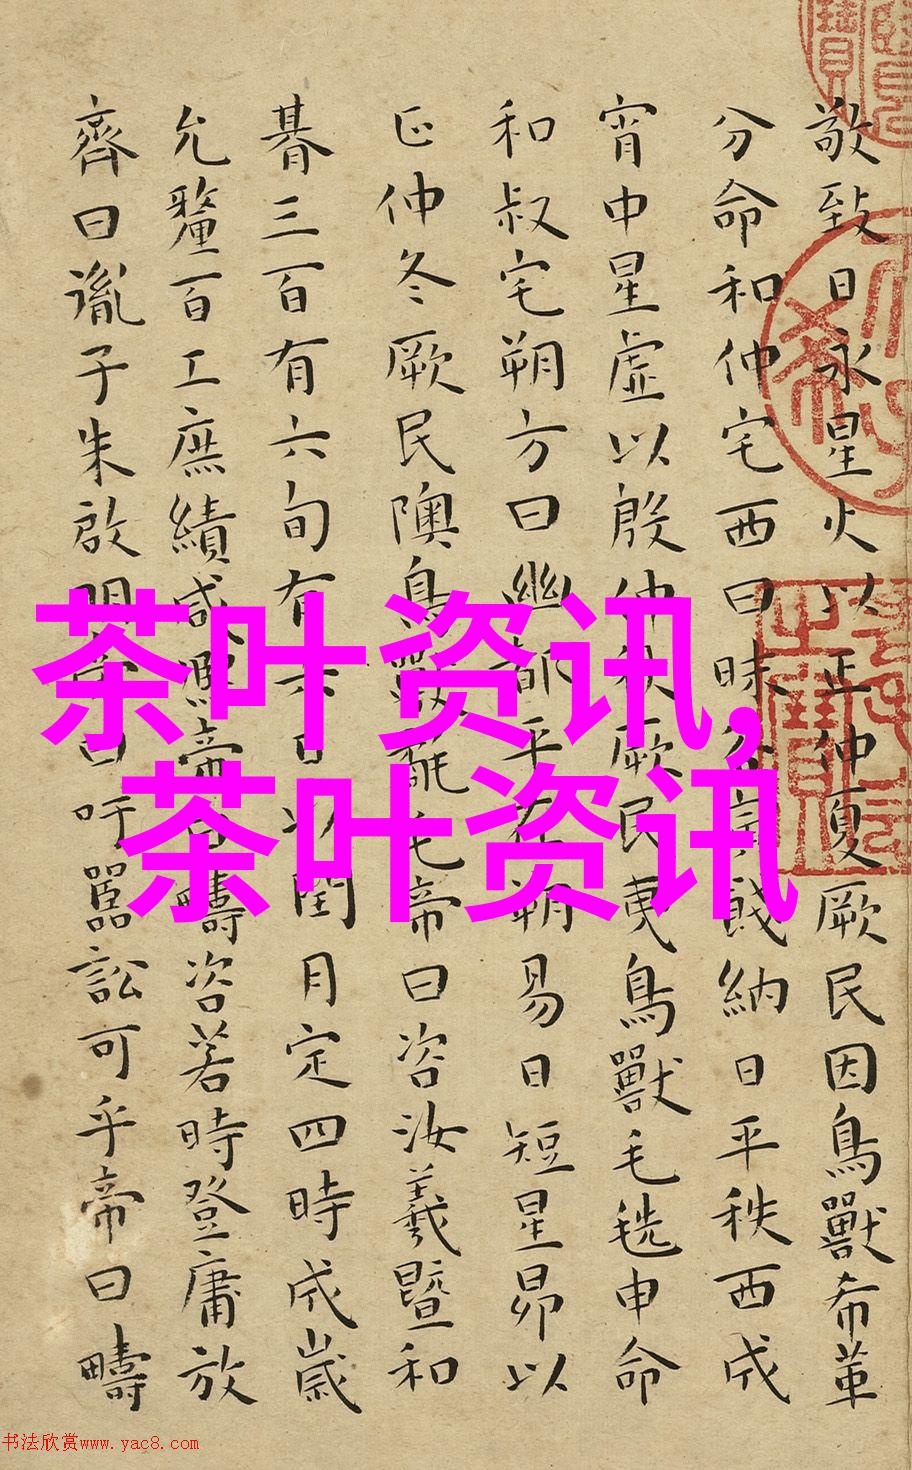 敬致日永星火以正仲夏厥民因鳥獸希革
分命和仲宅西曰昧谷寅餞納日平秩西成
宵中星虛以殷仲秋厥民夷鳥獸毛毨申命
和叔宅朔方曰幽都平在朔易日短星昴以
正仲冬厥民隩鳥獸氄毛帝曰咨汝羲暨和
朞三百有六旬有六日以閏月定四時成歲
允釐百工庶績咸熙帝曰疇咨若時登庸放
齊曰胤子朱啟明帝曰吁嚚訟可乎帝曰疇
茶叶资讯,
茶叶资讯
书法欣赏www.yac8.com